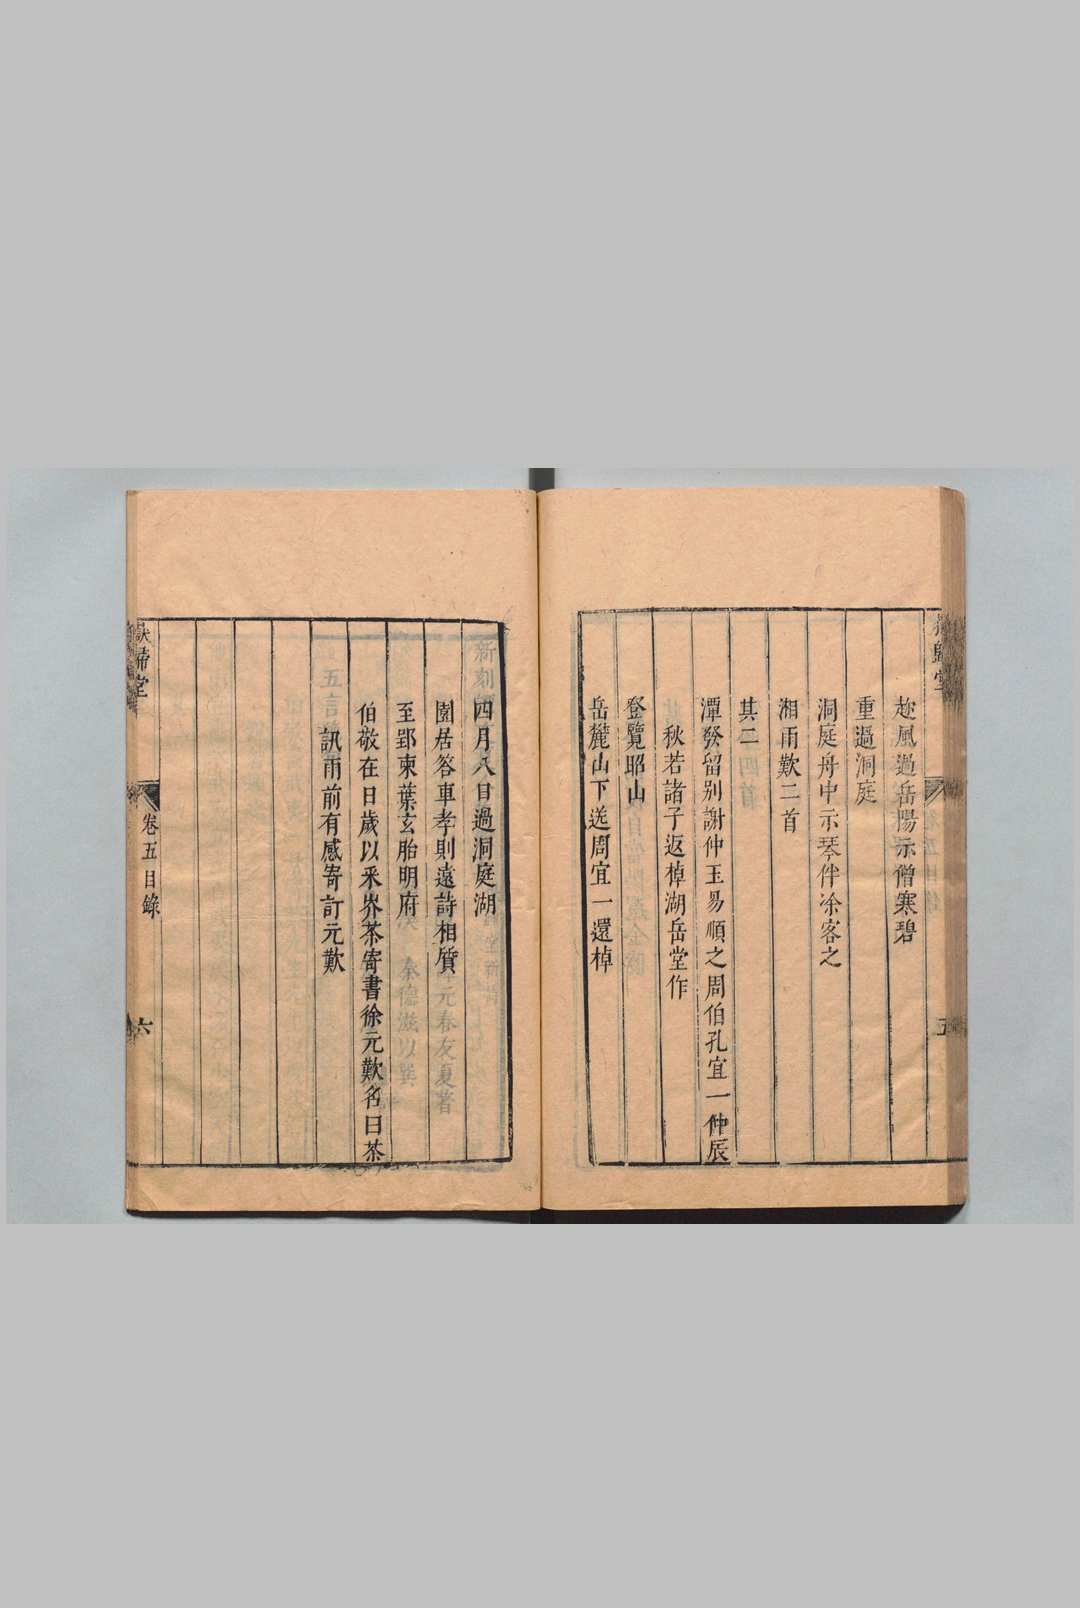 趂風過岳陽示僧寒碧
重過洞庭
洞庭舟中示琴伴凃客之
湘雨歎二首
其二
潭發留别謝仲玉易順之周伯孔宜一仲辰
秋若諸子返棹湖岳堂作
登覽昭山
岳麓山下送周宜一還棹
四月八日過洞庭湖
園居答車孝則遠詩相質
至郢柬葉玄胎明府
伯敬在日歲以采岕茶寄書徐元歎名曰茶
訊雨前有感寄訂元歎
歸堂
卷五目錄
六